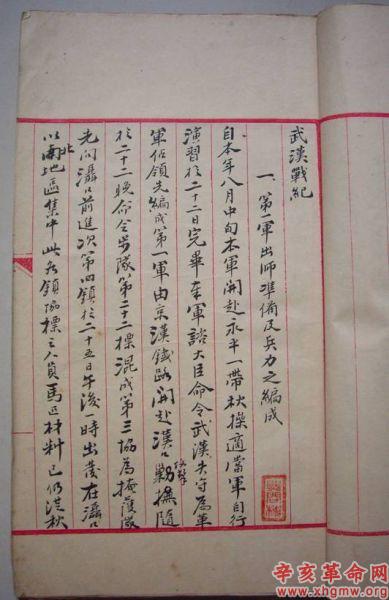 武漢戰紀
一、第一軍出師准備及兵力之編成
自本年八月中旬本軍開赴永平一帶秋操適當軍自行
演習於二十二日完畢奉軍諮大臣命令武漢失守爲革
軍佔領先編成第一軍由京漢鐵路開赴漢口勦撫隨
於二十二晚命令步隊第二十二標混成第三協爲掩護隊
先向灄口前進次第四鎮於二十五日午後一時出發在灄口
以北地區集中此無領協標之人員馬匹材料已仍從秋
辛亥革命网
www.xhgmw.org